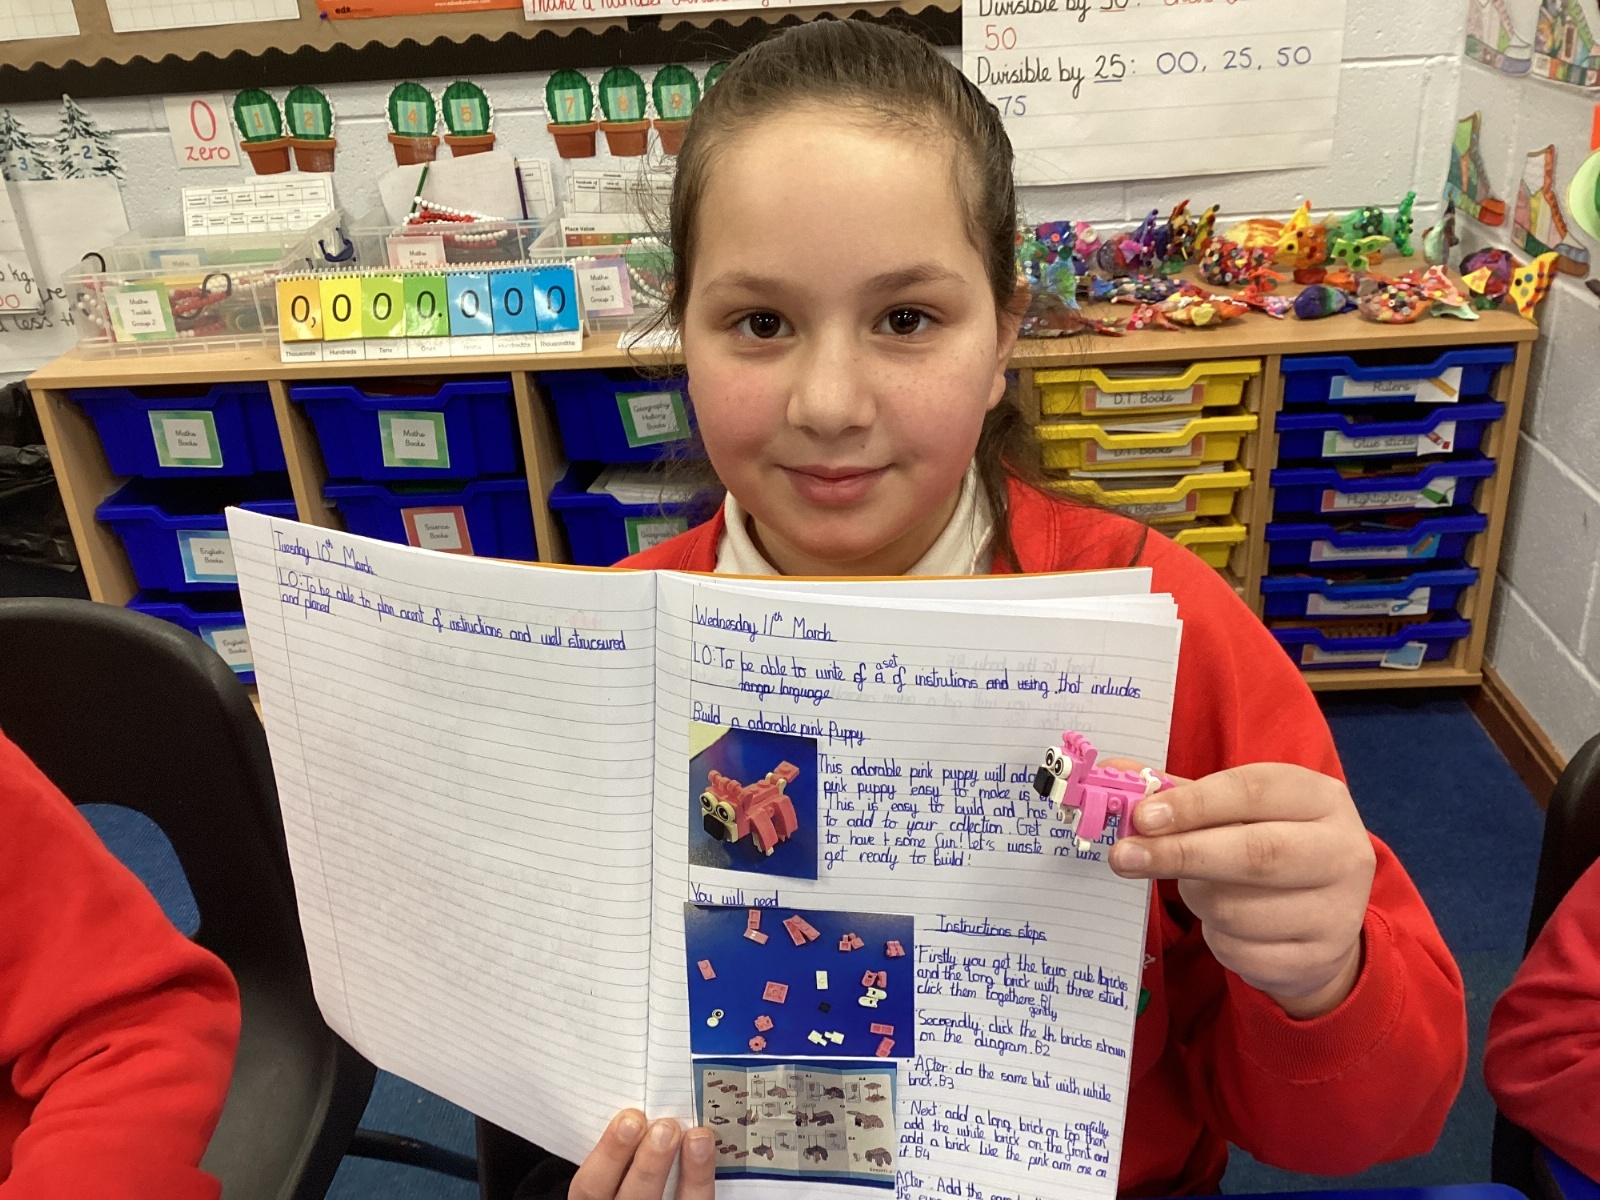 Divisible by 50:
50
Divisible by 25: 00, 25, 50
75
0
zero
1
2
4
5
7
8
9
-3
-2
kg.
Place Value
Maths Toolkit Group 2
Maths Toolkit Group 3
0,000.000
Thousands Hundreds Tens Ones
Maths Books
Maths Books
Geography History Books
English Books
Science Books
English
D.T. Books
D.T. Books
Rulers
Glue sticks
Highlighters
Scissors
Tuesday 10th March
LO:To be able to plan a cent of instructions and well strucsured
and planed
Wednesday 11th March
aset
LO:To be able to write of a of instrutions and using that includes
language
Build a adorable pink Puppy
This adorable pink puppy will
pink puppy easy to make is
This is easy to build and has
to add to your collection. Get
to have t some fun! Let's waste no time
get ready to build!
You will need
Instructions steps
Firstly you get the cub bricks
and the long brick with three stud,
click them togethere B1
gently
Secoendly: click the bricks shown
on the diagram. B2
After: do the same but with white
brick. B3
Next: add a long brick on top then
carfully
add the white brick on the front and
add a brick like the pink arm one on
it. B4
After: Add the